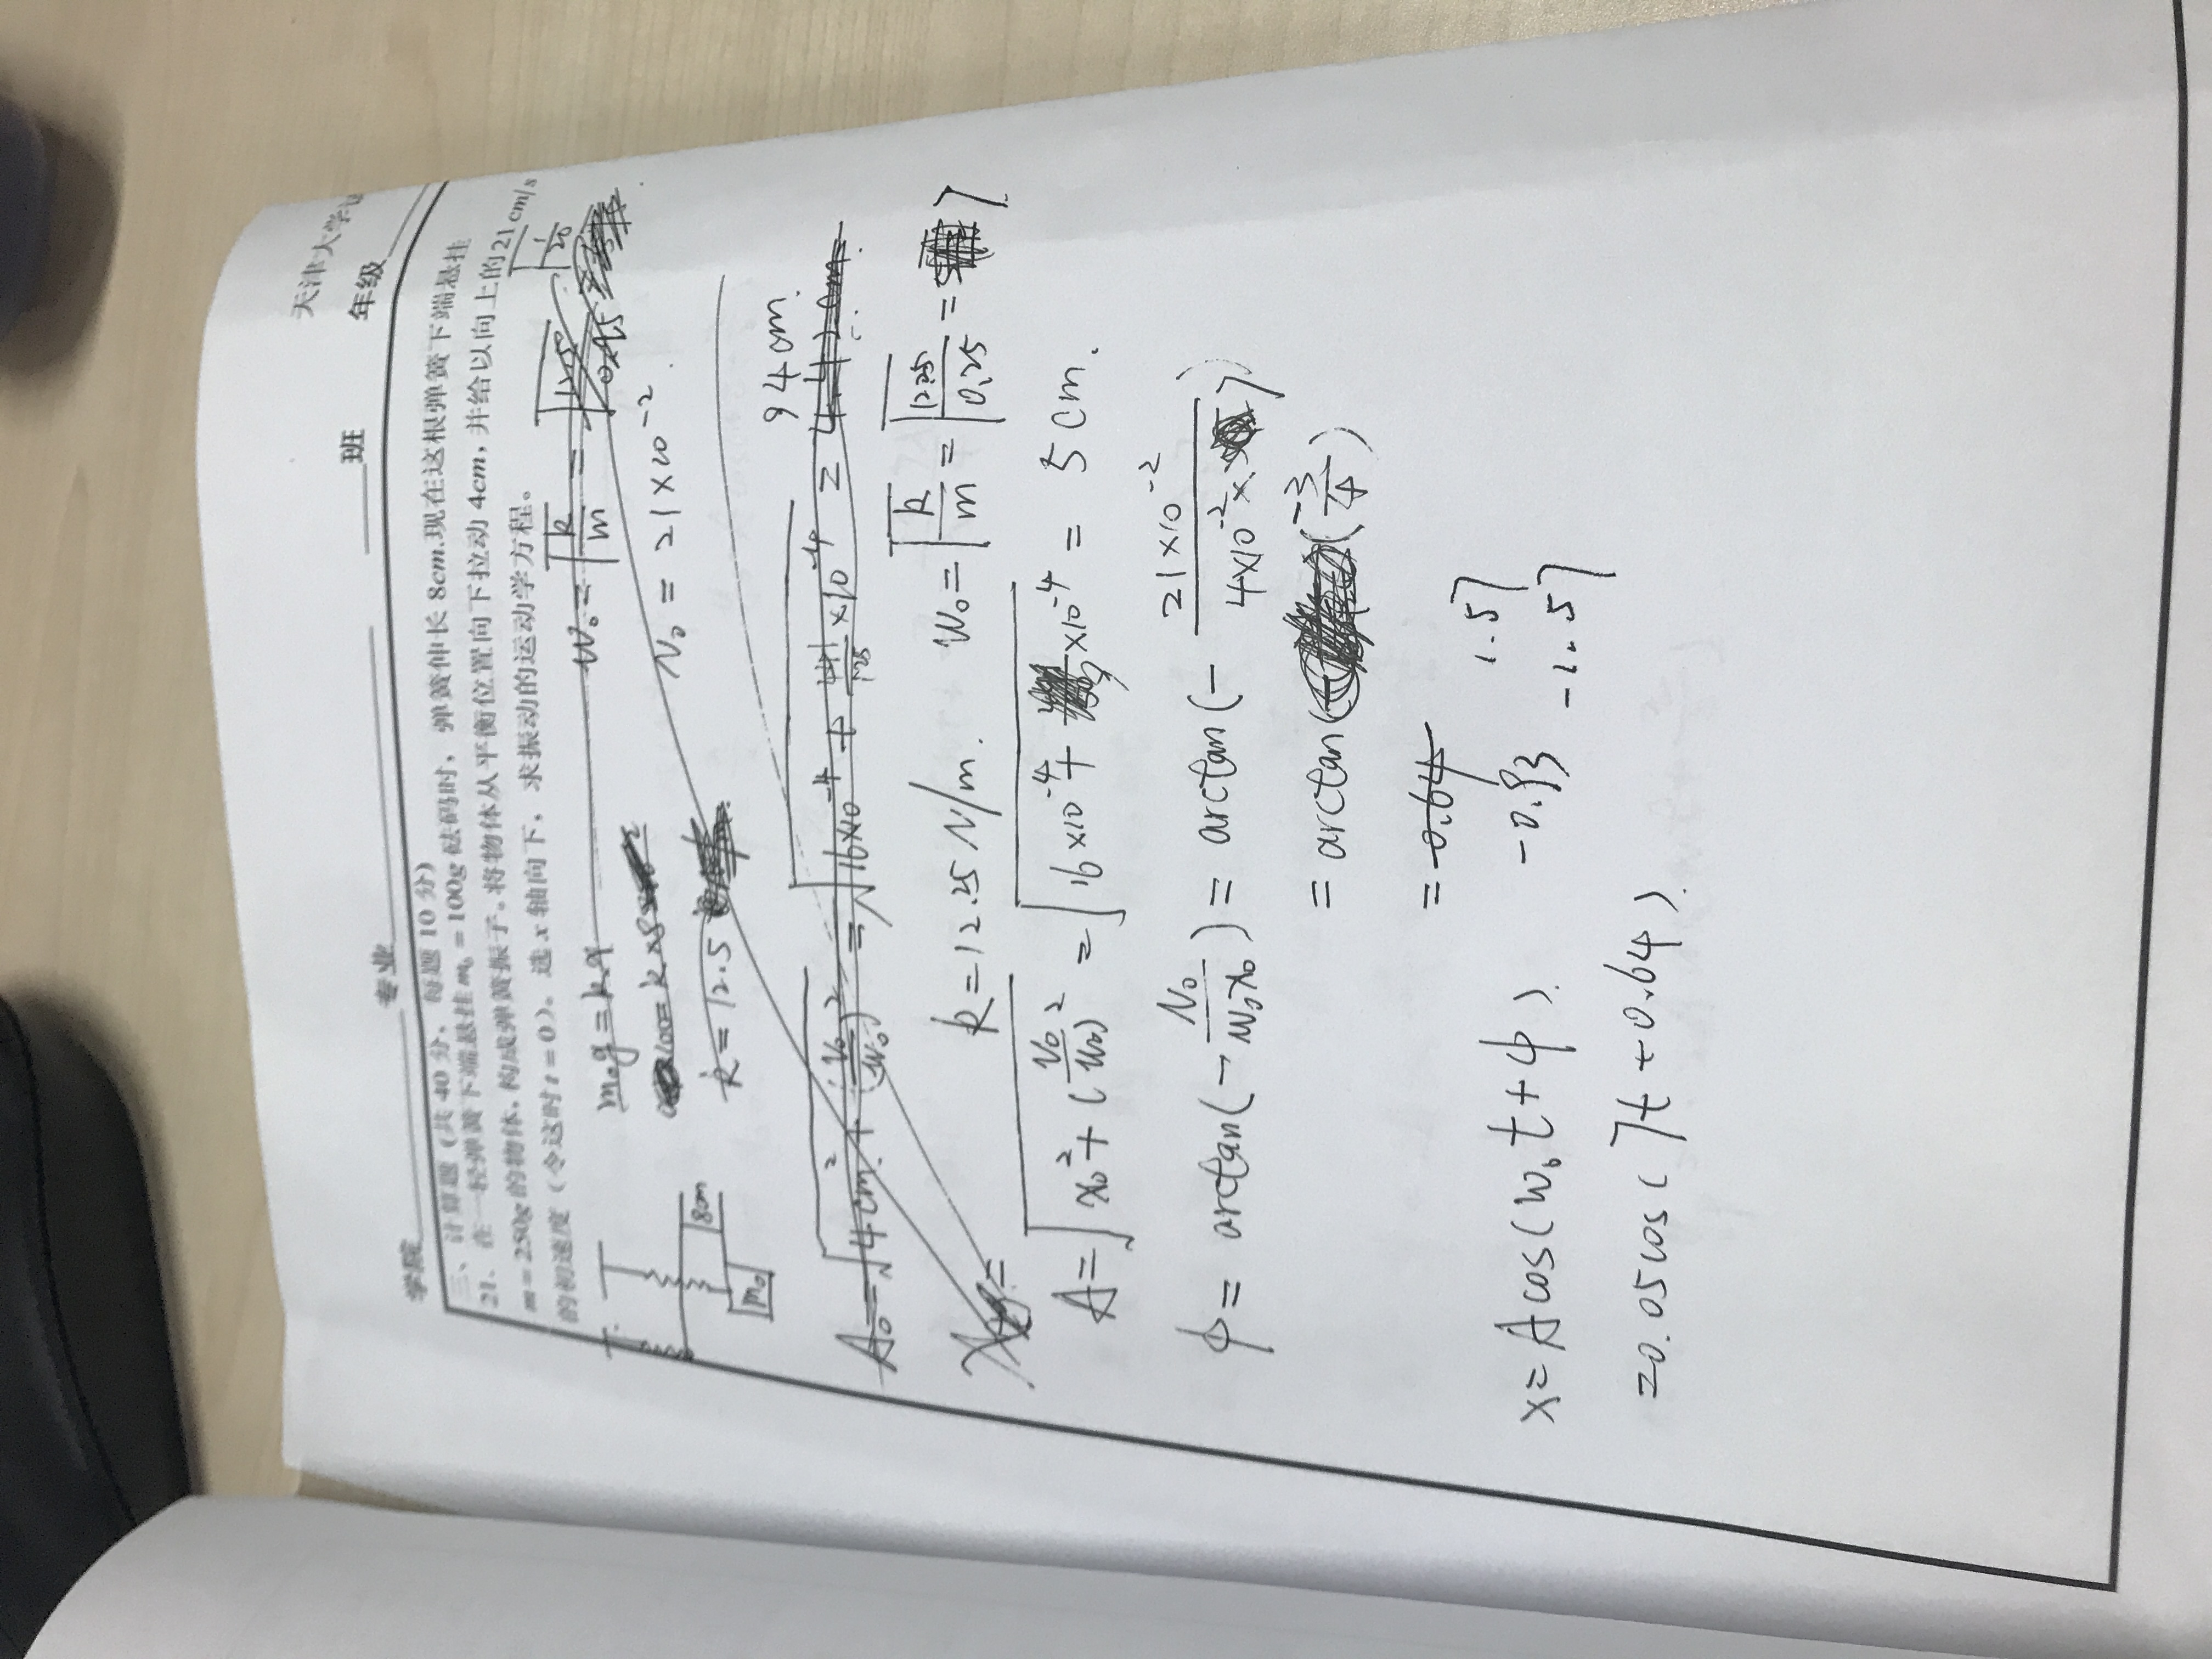 天津大学试
学院 专业 班 年级
三、计算题(共40分,每题10分)
21、在一轻弹簧下端悬挂m₀=100g砝码时,弹簧伸长8cm.现在这根弹簧下端悬挂
m=250g的物体,构成弹簧振子。将物体从平衡位置向下拉动4cm,并给以向上的21cm/s
的初速度(令这时t=0)。选x轴向下,求振动的运动学方程。
m₀g=kx
w₀=√(k/m)=
√(1/20)
100=k×8
v₀=21×10⁻²
k=12.5
8cm
m₀
94cm
A₀=√(4cm²+(v₀/w₀)²)=√(16×10⁻⁴+ ×10⁻⁴)=4.42cm
k=12.25N/m. w₀=√(k/m)=√(12.25/0.25)=7
A=√(x₀²+(v₀/w₀)²)=√(16×10⁻⁴+9×10⁻⁴)=5cm.
φ=arctan(-v₀/w₀x₀)=arctan(-21×10⁻²/4×10⁻²×7)
=arctan(-3/4)
=-0.64
1.57
x=Acos(w₀t+φ). -0.93
-1.57
=0.05cos(7t+0.64).